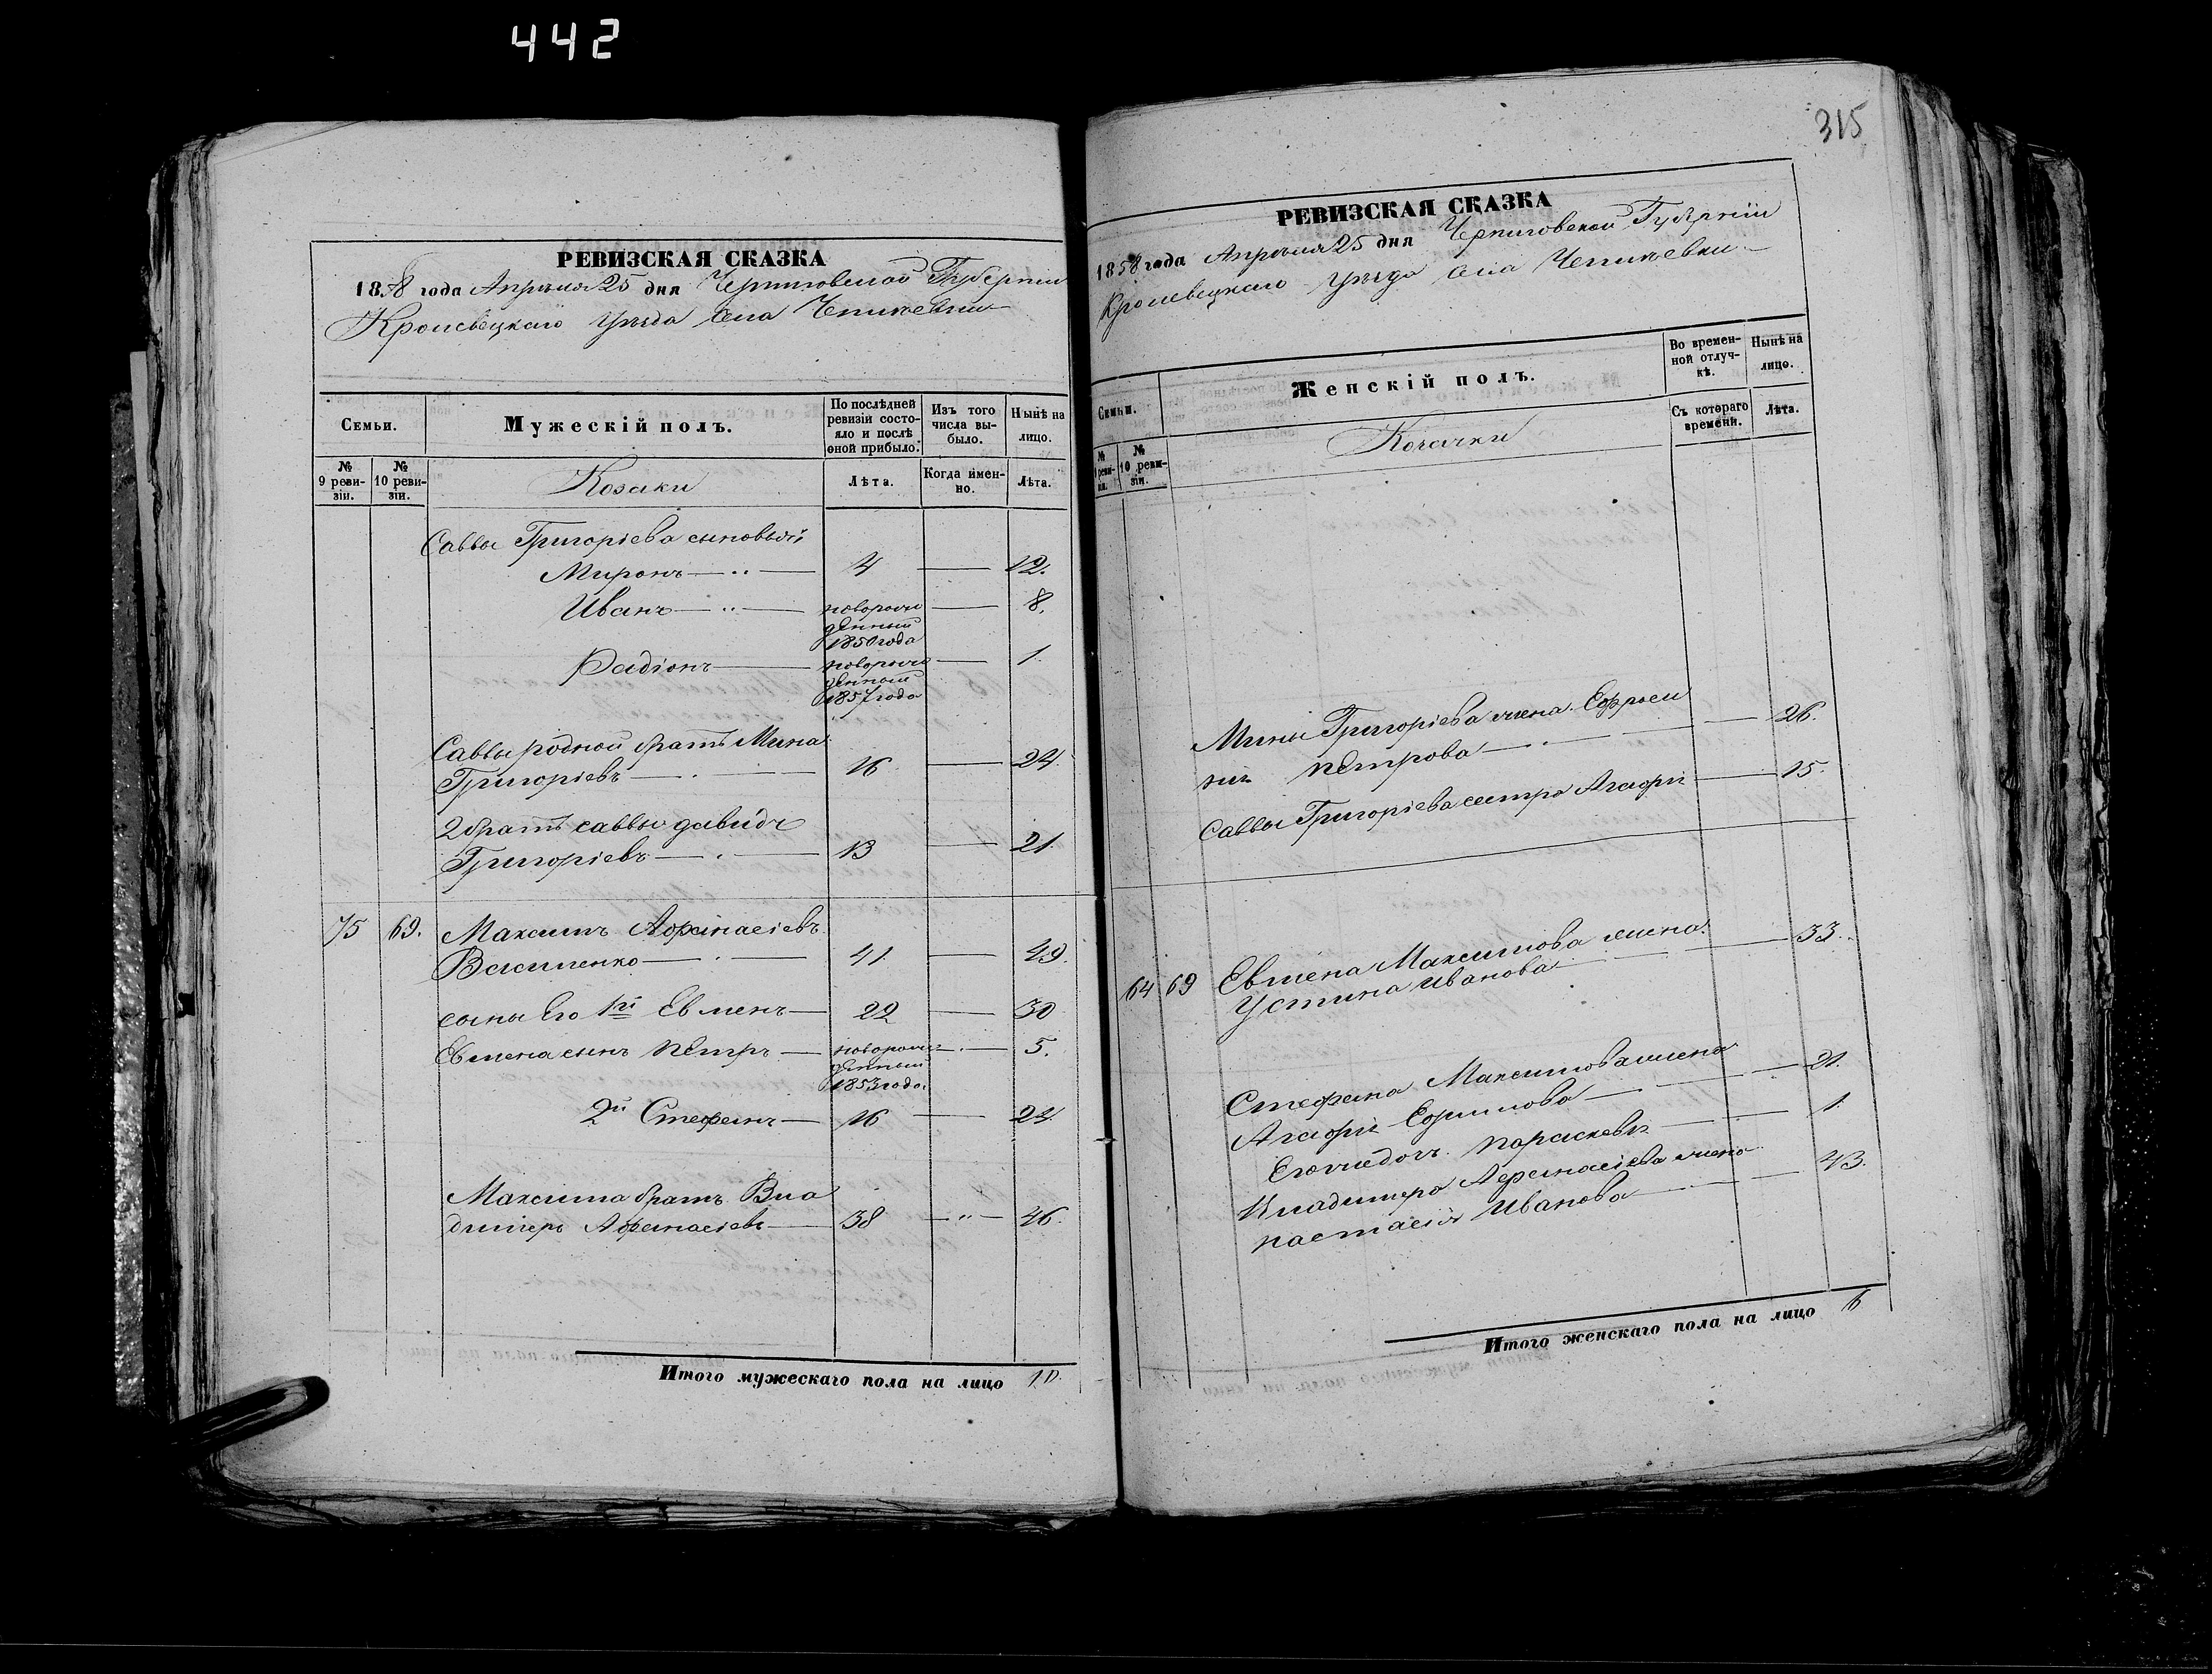 442
РЕВИЗСКАЯ СКАЗКА
1858 года Апрѣля 25 дня Черниговской Губерніи
Кролевецкаго уѣзда села Чепліевки
Семьи.
Мужескій полъ.
По послѣдней ревизіи состояло и послѣ оной прибыло.
Изъ того числа выбыло.
Нынѣ на лицо.
№ 9 ревизіи.
№ 10 ревизіи.
Козаки
Лѣта.
Когда именно.
Лѣта.
Саввы Григоріева сыновья
Миронъ 4 12.
Иванъ новорожденный 1850 года 8.
Радіонъ новорожденный 1857 года 1.
Саввы родной братъ Мина
Григоріевъ 16 24.
2 братъ Саввы Давидъ
Григоріевъ 13 21.
75 69. Максимъ Афанасіевъ
41 49.
сыны Его 1й Евменъ 22 30
Евмена сынъ Петръ новорожденный 1853 года. 5.
2й Стефанъ 16 24.
Максима братъ Вла
димеръ Афанасіевъ 38 46.
Итого мужескаго пола на лицо 10.
315
РЕВИЗСКАЯ СКАЗКА
1858 года Апрѣля 25 дня Черниговской Губерніи
Кролевецкаго уѣзда села Чепліевки
Семьи.
Женскій полъ.
Во временной отлучкѣ.
Нынѣ на лицо.
№ 9 ревизіи.
№ 10 ревизіи.
Козачки
Съ котораго времени.
Лѣта.
Мины Григоріева жена Ефроси
нія Петрова 26.
Саввы Григоріева сестра Агафія 15.
64 69 Евмена Максимова жена
Устина Иванова 33.
Стефана Максимова жена
Агафія Ефимова 21.
Его дочь Параскевія 1.
Владимера Афанасіева жена
Настасія Иванова 43.
Итого женскаго пола на лицо 6